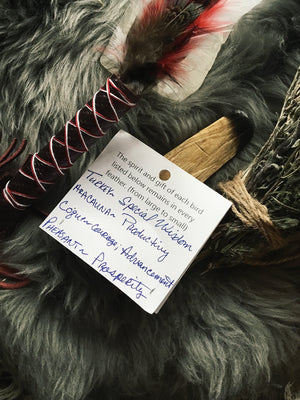 The spirit and gift of each bird
listed below remains in every
feather. (from large to small)
Turkey ~ Special Wisdom
Araçauna ~ Productivity
Coque ~ Courage; Advancement
Pheasant ~ Prosperity!